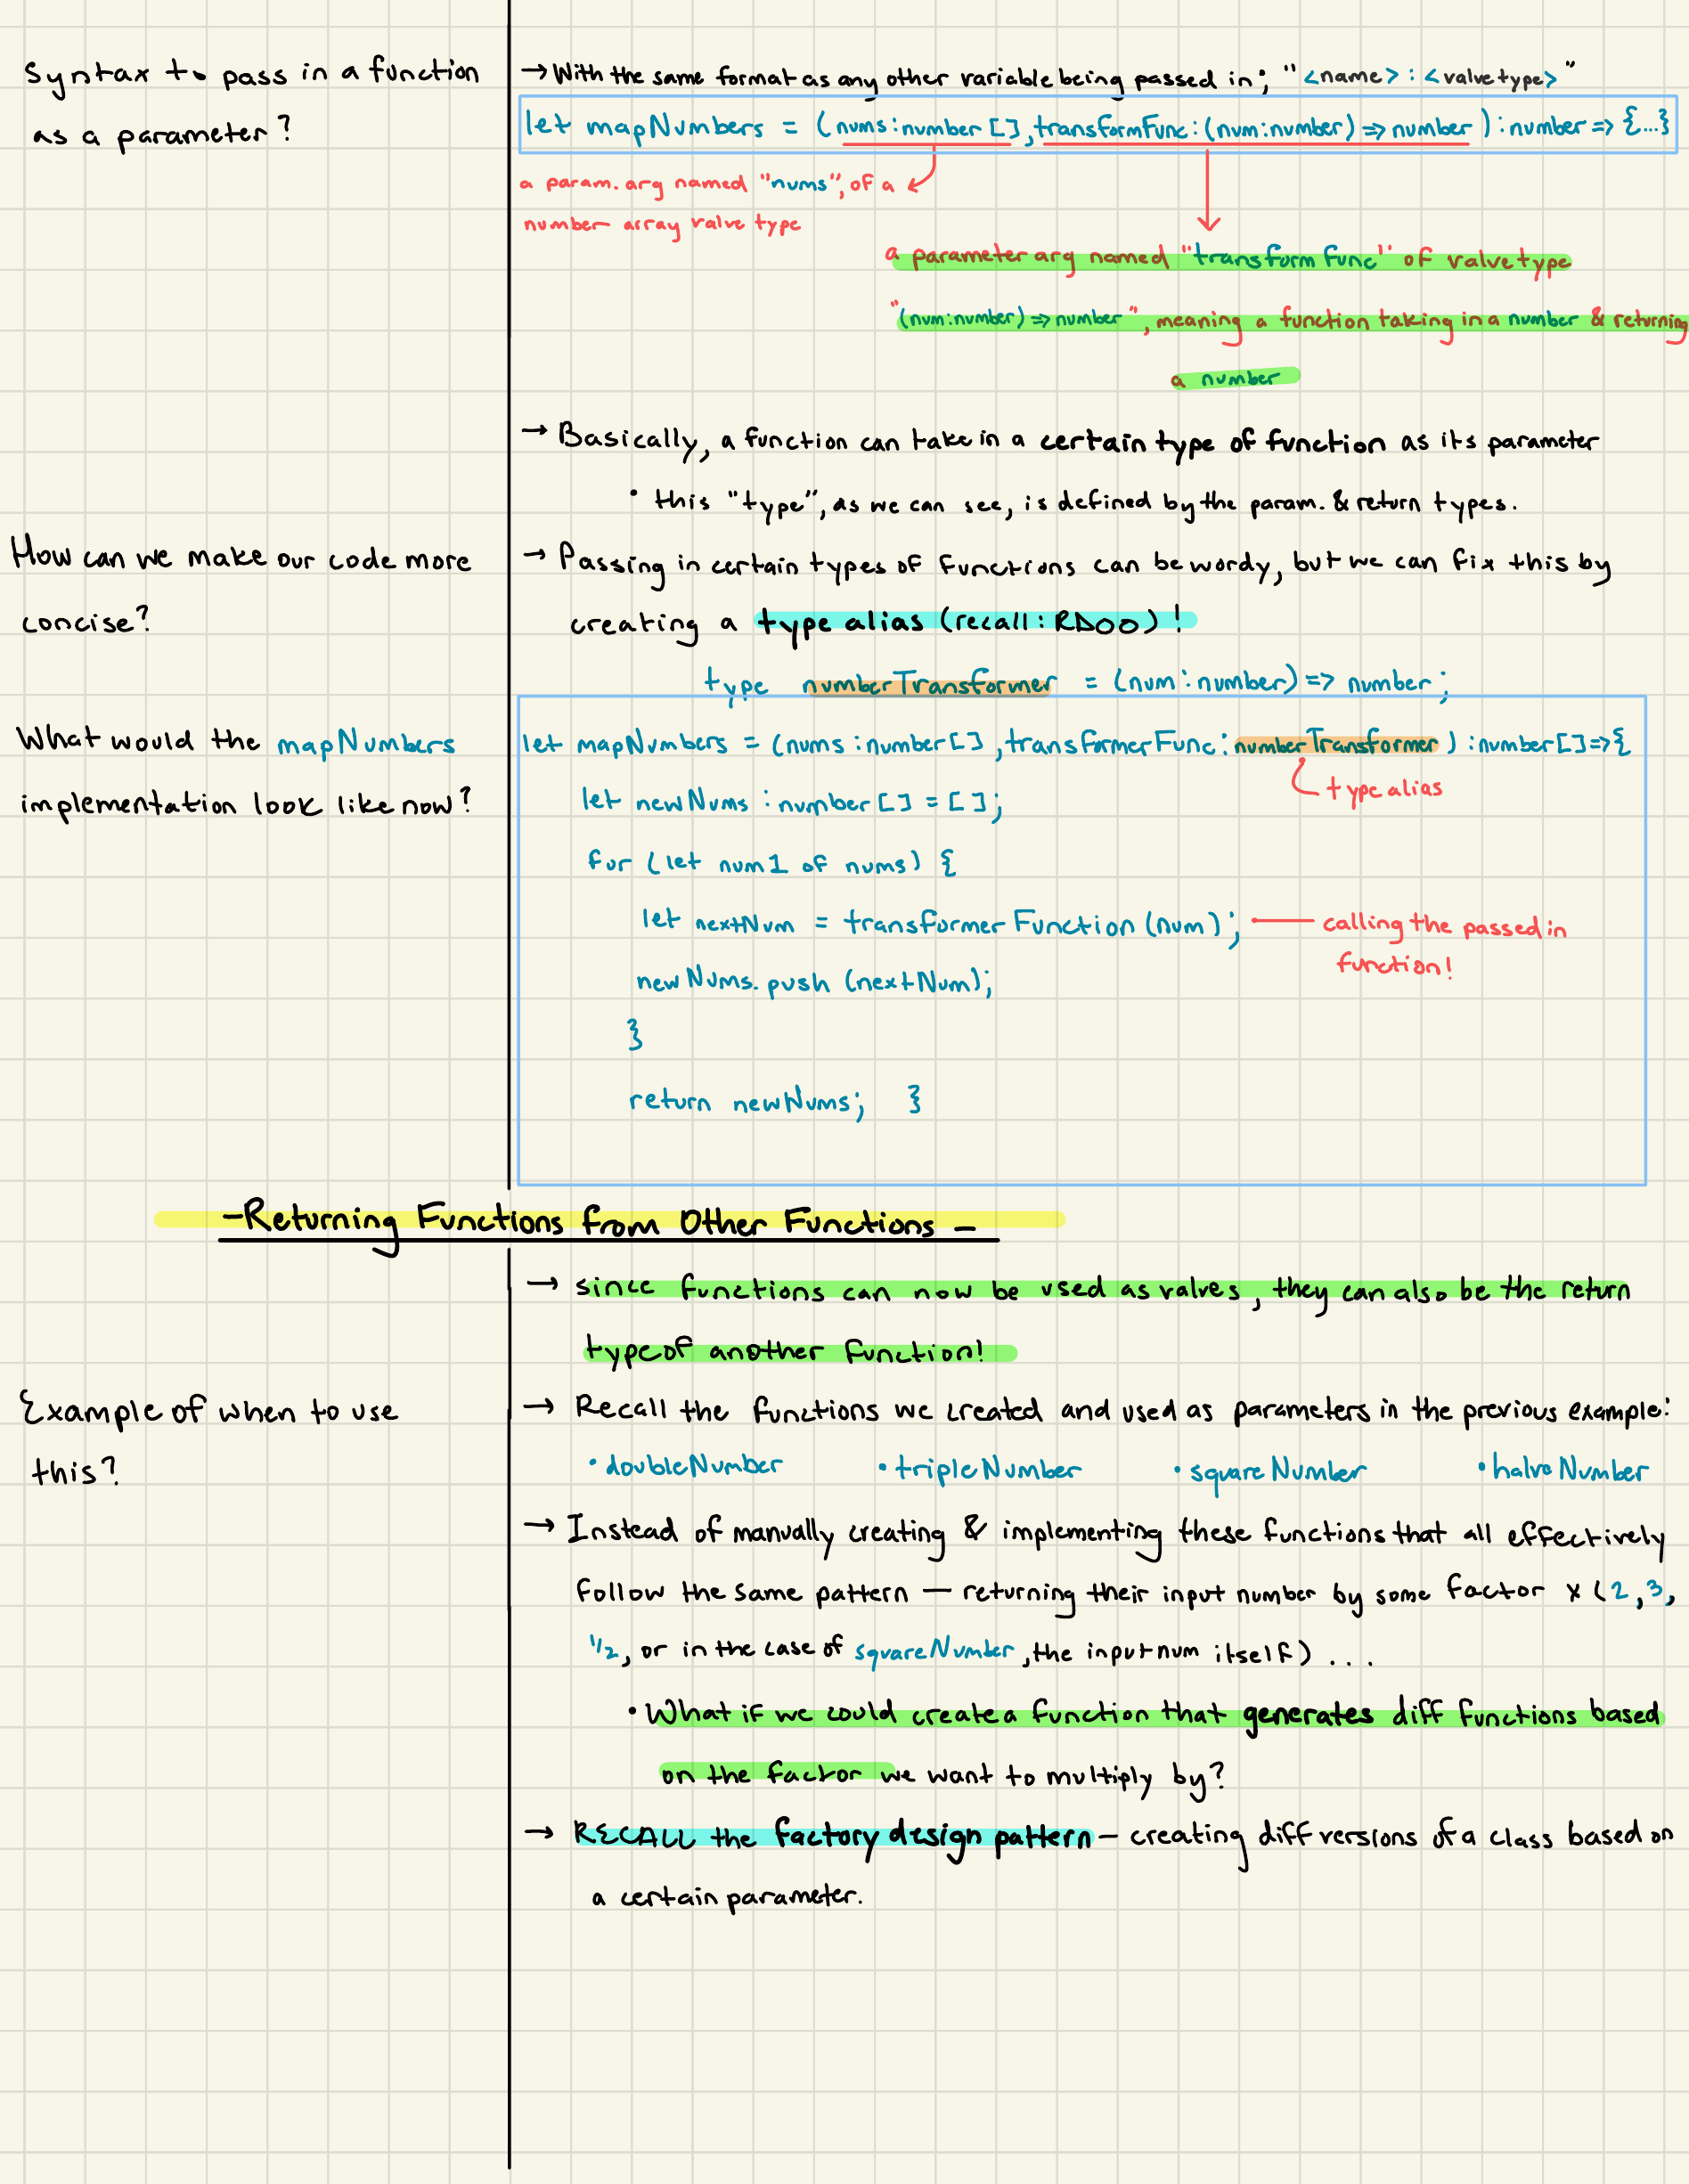 Syntax to pass in a function
as a parameter?
→ With the same format as any other variable being passed in; "<name> : <value type>"
let mapNumbers = (nums:number[], transformFunc:(num:number) => number) : number => {...}
a param. arg named "nums", of a
number array value type
a parameter arg named "transform func" of value type
"(num:number) => number", meaning a function taking in a number & returning
a number
→ Basically, a function can take in a certain type of function as its parameter
• this "type", as we can see, is defined by the param. & return types.
How can we make our code more
concise?
→ Passing in certain types of functions can be wordy, but we can fix this by
creating a type alias (recall: RD00)!
type numberTransformer = (num:number) => number;
What would the mapNumbers
implementation look like now?
let mapNumbers = (nums:number[], transformerFunc: numberTransformer) : number[] => {
type alias
let newNums : number[] = [];
for (let num1 of nums) {
let nextNum = transformerFunction(num);
calling the passed in
function!
newNums.push(nextNum);
}
return newNums; }
- Returning Functions from Other Functions -
→ since functions can now be used as values, they can also be the return
type of another function!
Example of when to use
this?
→ Recall the functions we created and used as parameters in the previous example:
• doubleNumber • tripleNumber • squareNumber • halveNumber
→ Instead of manually creating & implementing these functions that all effectively
follow the same pattern — returning their input number by some factor x (2, 3,
1/2, or in the case of squareNumber, the input num itself) ...
• What if we could create a function that generates diff functions based
on the factor we want to multiply by?
→ RECALL the factory design pattern — creating diff versions of a class based on
a certain parameter.